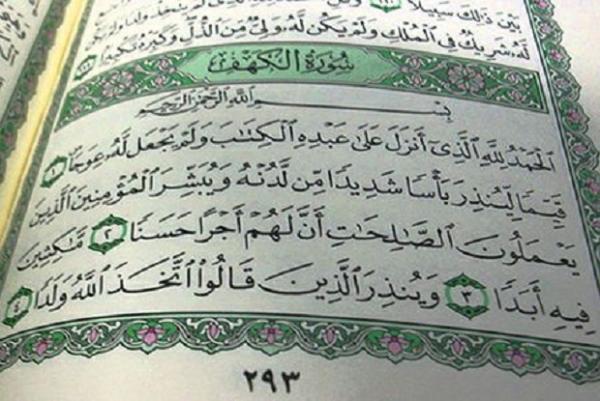 بَيْنَ ذَٰلِكَ سَبِيلًا
لَّهُۥ شَرِيكٌ فِى ٱلْمُلْكِ وَلَمْ يَكُن لَّهُۥ وَلِىٌّ مِّنَ ٱلذُّلِّ وَكَبِّرْهُ تَكْبِيرًۢا ١١١
سُورَةُ الكَهْفِ
بِسْمِ ٱللَّهِ ٱلرَّحْمَٰنِ ٱلرَّحِيمِ
ٱلْحَمْدُ لِلَّهِ ٱلَّذِىٓ أَنزَلَ عَلَىٰ عَبْدِهِ ٱلْكِتَٰبَ وَلَمْ يَجْعَل لَّهُۥ عِوَجَاۜ ١
قَيِّمًا لِّيُنذِرَ بَأْسًا شَدِيدًا مِّن لَّدُنْهُ وَيُبَشِّرَ ٱلْمُؤْمِنِينَ ٱلَّذِينَ
يَعْمَلُونَ ٱلصَّٰلِحَٰتِ أَنَّ لَهُمْ أَجْرًا حَسَنًا ٢ مَّٰكِثِينَ
فِيهِ أَبَدًا ٣ وَيُنذِرَ ٱلَّذِينَ قَالُوا۟ ٱتَّخَذَ ٱللَّهُ وَلَدًا ٤
٢٩٣